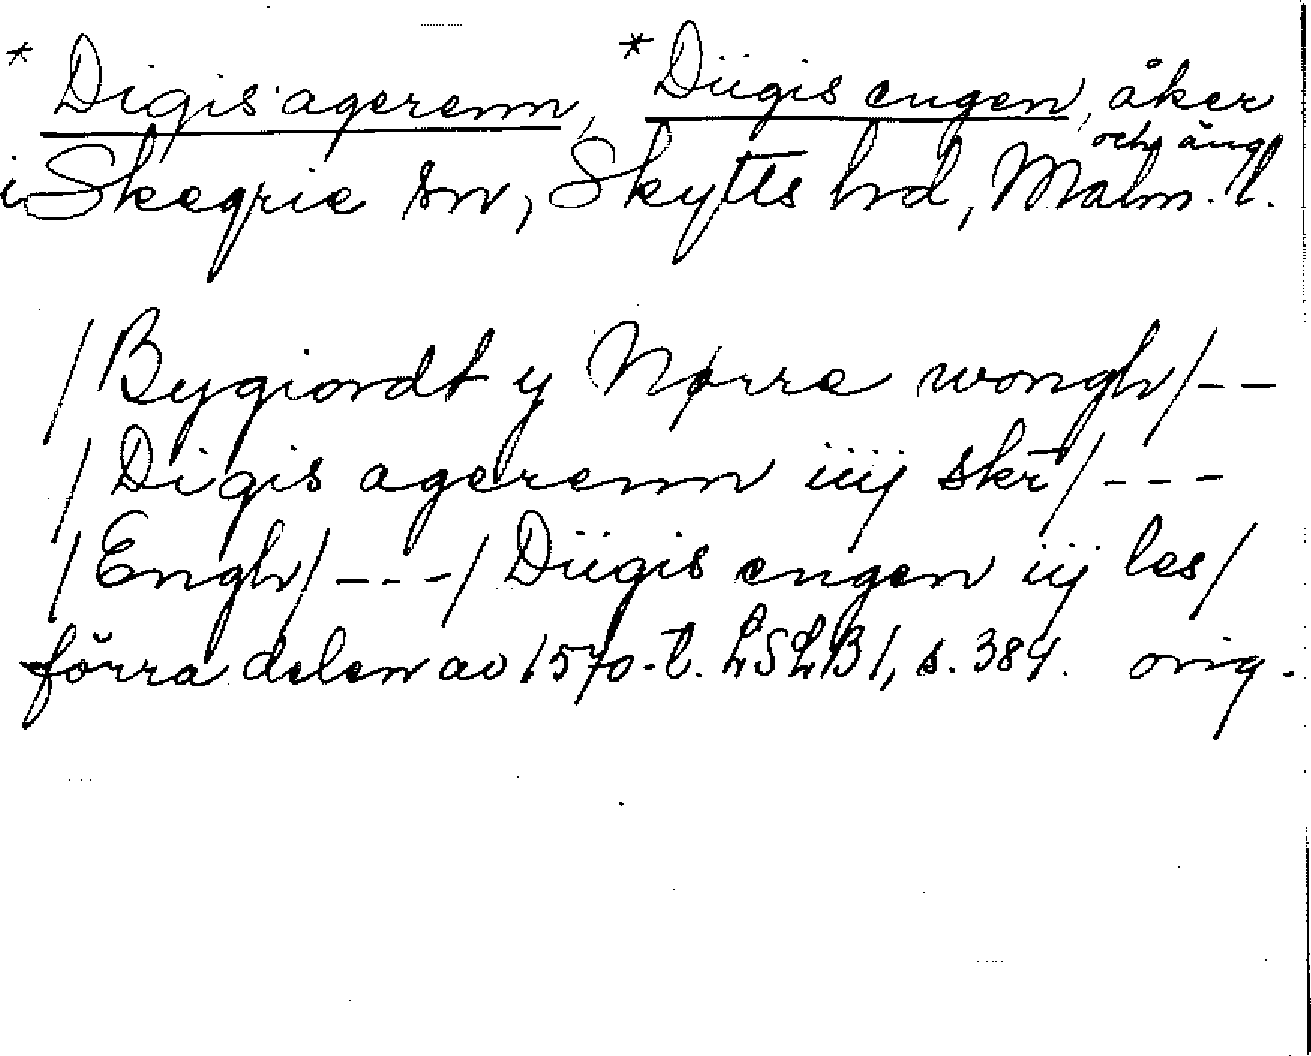 * Digis agerenn, * Diigis engen, åker
och äng
i Skegrie sn, Skytts hd, Malm. l.
/Bygiordt y Nørre wongh/---
/Digis agerenn iiij skr/---
/Engh/---/Diigis engen iij les/
förra delen av 1570-t. LSLB1, s. 384. orig.